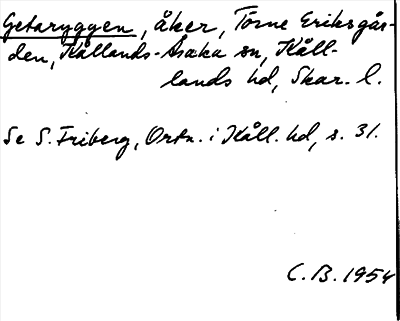 Getaryggen, åker, Torne Eriksgår-
den, Kållands-Åsaka sn, Kåll-
lands hd, Skar. l.
Se S. Friberg, Ortn. i Kåll. hd, s. 31.
C. B. 1954